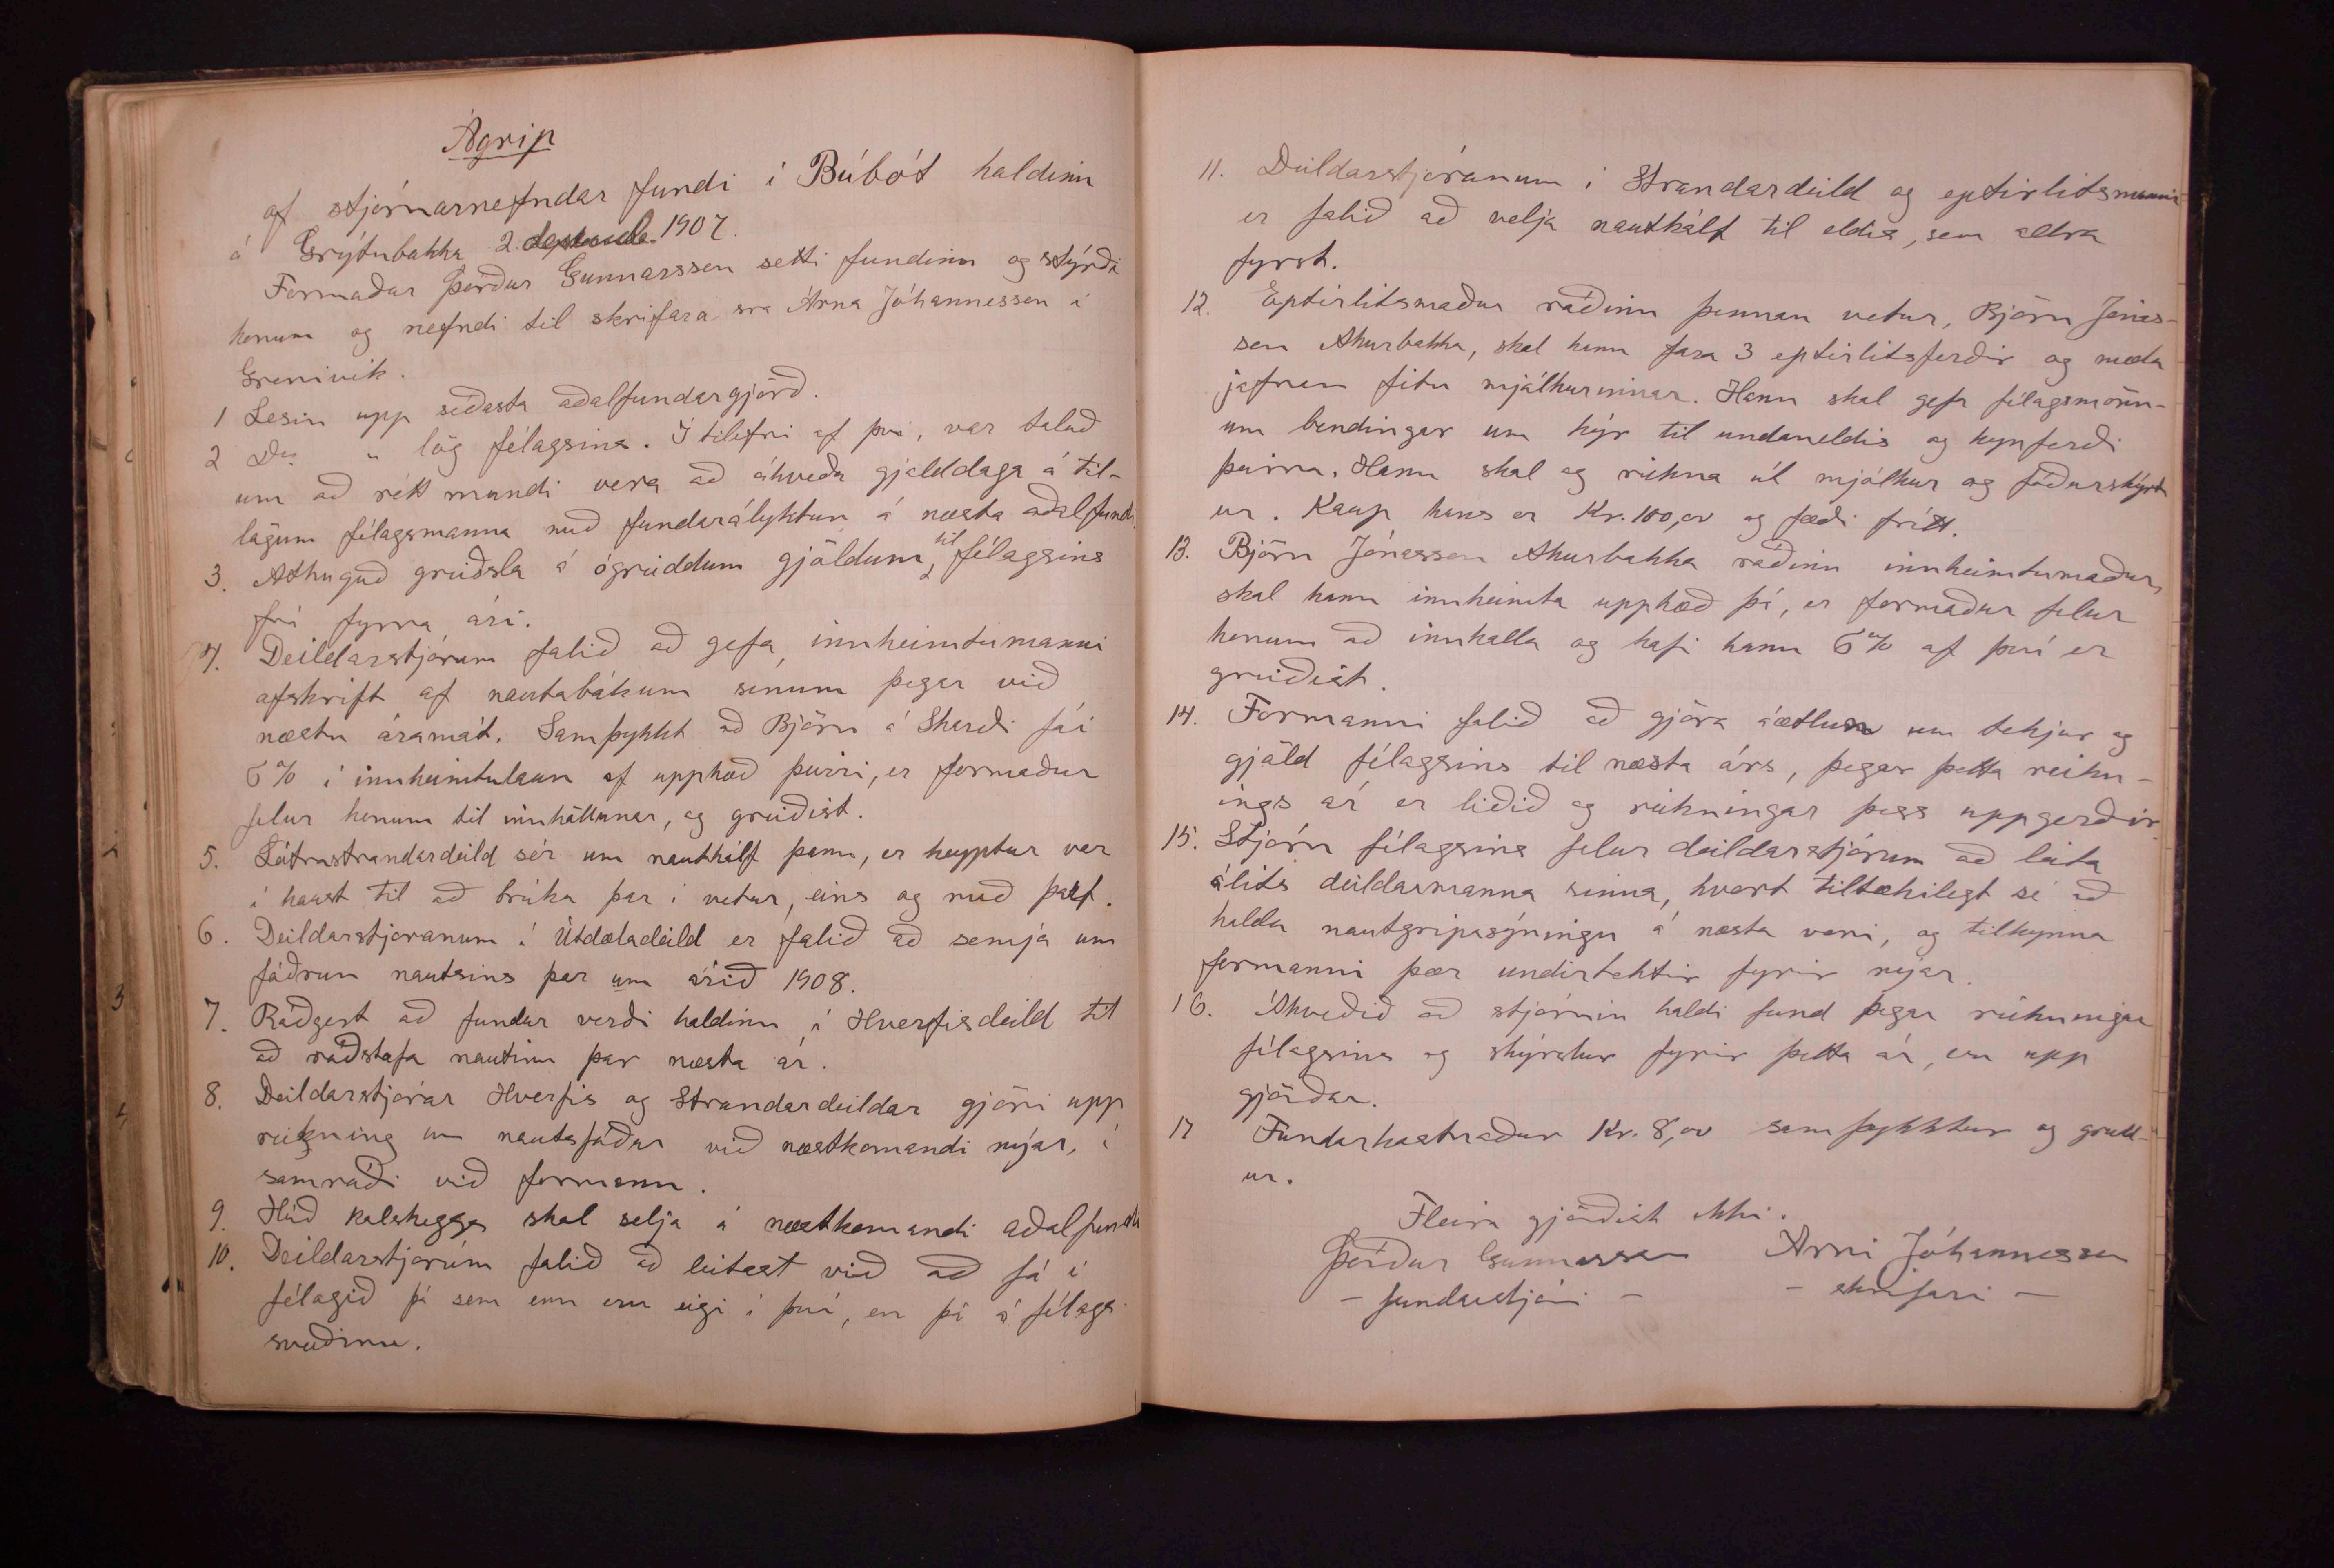 Ágrip
af stjórnarnefndar fundi í Búbót haldinn
á Grýtubakka 2. desember 1907.
Formaður Þórður Gunnarsson setti fundinn og stýrði
honum og nefndi til skrifara sra Árna Jóhannesson í
Grenivík.
1 Lesin upp síðasta aðalfundargjörð.
2 Do " lög félagsins. Í tilefni af því, var talað
um að rétt mundi vera að ákveða gjalddaga á til-
lögum félagsmanna með fundarályktun á næsta aðalfundi.
3. Athuguð greiðsla á ógreiddum gjöldum, til félagsins
frá fyrra ári.
4. Deildarstjórum falið að gefa innheimtumanni
afskrift af nautabókum sínum þegar við
næstu áramót. Samþykkt að Björn á Skarði fái
6% í innheimtulaun af upphæð þeirri, er formaður
felur honum til innköllunar, og greiðist.
5. Látrastrandardeild sér um nautkálf þann, er keyptur var
í haust til að brúka þar í vetur, eins og með þarf.
6. Deildarstjóranum í Útdæladeild er falið að semja um
fóðrun nautsins þar um árið 1908.
7. Ráðgert að fundur verði haldinn í Hverfisdeild til
að ráðstafa nautinu þar næsta ár.
8. Deildarstjórar Hverfis og Strandardeildar gjöri upp
reikning um nautsfóður við næstkomandi nýár, í
samráði við formann.
9. Húð Kalskeggs skal selja á næstkomandi aðalfundi
10. Deildarstjórum falið að leitast við að fá í
félagið þá sem enn eru eigi í því, en þó á félags
svæðinu.
11. Deildarstjóranum í Strandardeild og eptirlitsmanni
er falið að velja nautkálf til eldis, sem allra
fyrst.
12. Eptirlitsmaður ráðinn þennan vetur, Björn Jónas-
son Akurbakka, skal hann fara 3 eptirlitsferðir og mæla
jafnan fitu mjólkurinnar. Hann skal gefa félagsmönn-
um bendingar um kýr til undaneldis og kynferði
þeirra. Hann skal og reikna út mjólkur og fóðurskýrsl
ur. Kaup hans er Kr. 100,00 og fæði frítt.
13. Björn Jónasson Akurbakka ráðinn innheimtumaður,
skal hann innheimta upphæð þá, er formaður felur
honum að innkalla og hafi hann 6% af því er
greiðist.
14. Formanni falið að gjöra áætlun um tekjur og
gjöld félagsins til næsta árs, þegar þetta reikn-
ings ár er liðið og reikningar þess uppgerðir.
15. Stjórn félagsins felur deildarstjórum að leita
álits deildarmanna sinna, hvort tiltækilegt sé að
halda nautgripasýningu á næsta vori, og tilkynna
formanni þær undirtektir fyrir nýár.
16. Ákveðið að stjórnin haldi fund þegar reikningar
félagsins og skýrslur fyrir þetta ár, eru upp
gjörðar.
17 Fundarkostnaður Kr. 8,00 samþykktur og greidd-
ur.
Fleira gjörðist ekki.
Þórður Gunnarsson Árni Jóhannesson
- fundarstjóri - - skrifari -